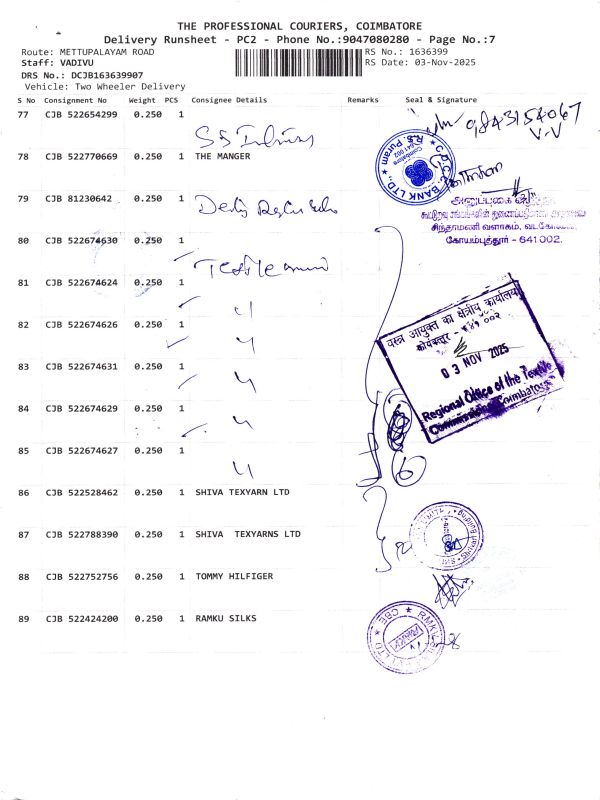 THE PROFESSIONAL COURIERS, COIMBATORE
Delivery Runsheet - PC2 - Phone No.:9047080280 - Page No.:7
Route: METTUPALAYAM ROAD
RS No.: 1636399
Staff: VADIVU
RS Date: 03-Nov-2025
DRS No.: DCJB163639907
Vehicle: Two Wheeler Delivery
S No Consignment No Weight PCS Consignee Details Remarks Seal & Signature
77 CJB 522654299 0.250 1
9843154067
V.V
78 CJB 522770669 0.250 1 THE MANGER
C.D.C.C. BANK LTD., R.S. Puram
Coimbatore
641 002
79 CJB 81230642 0.250 1
சிந்தாமணி வளாகம்,
கோயம்புத்தூர் - 641 002.
80 CJB 522674630 0.250 1
81 CJB 522674624 0.250 1
"
82 CJB 522674626 0.250 1
"
वस्त्र आयुक्त का क्षेत्रीय कार्यालय
कोयंबत्तूर - ६४१ ००२
03 NOV 2025
Regional Office of the Textile
Commissioner, Coimbatore
83 CJB 522674631 0.250 1
"
84 CJB 522674629 0.250 1
"
85 CJB 522674627 0.250 1
"
6
86 CJB 522528462 0.250 1 SHIVA TEXYARN LTD
87 CJB 522788390 0.250 1 SHIVA TEXYARNS LTD
88 CJB 522752756 0.250 1 TOMMY HILFIGER
89 CJB 522424200 0.250 1 RAMKU SILKS
CBE